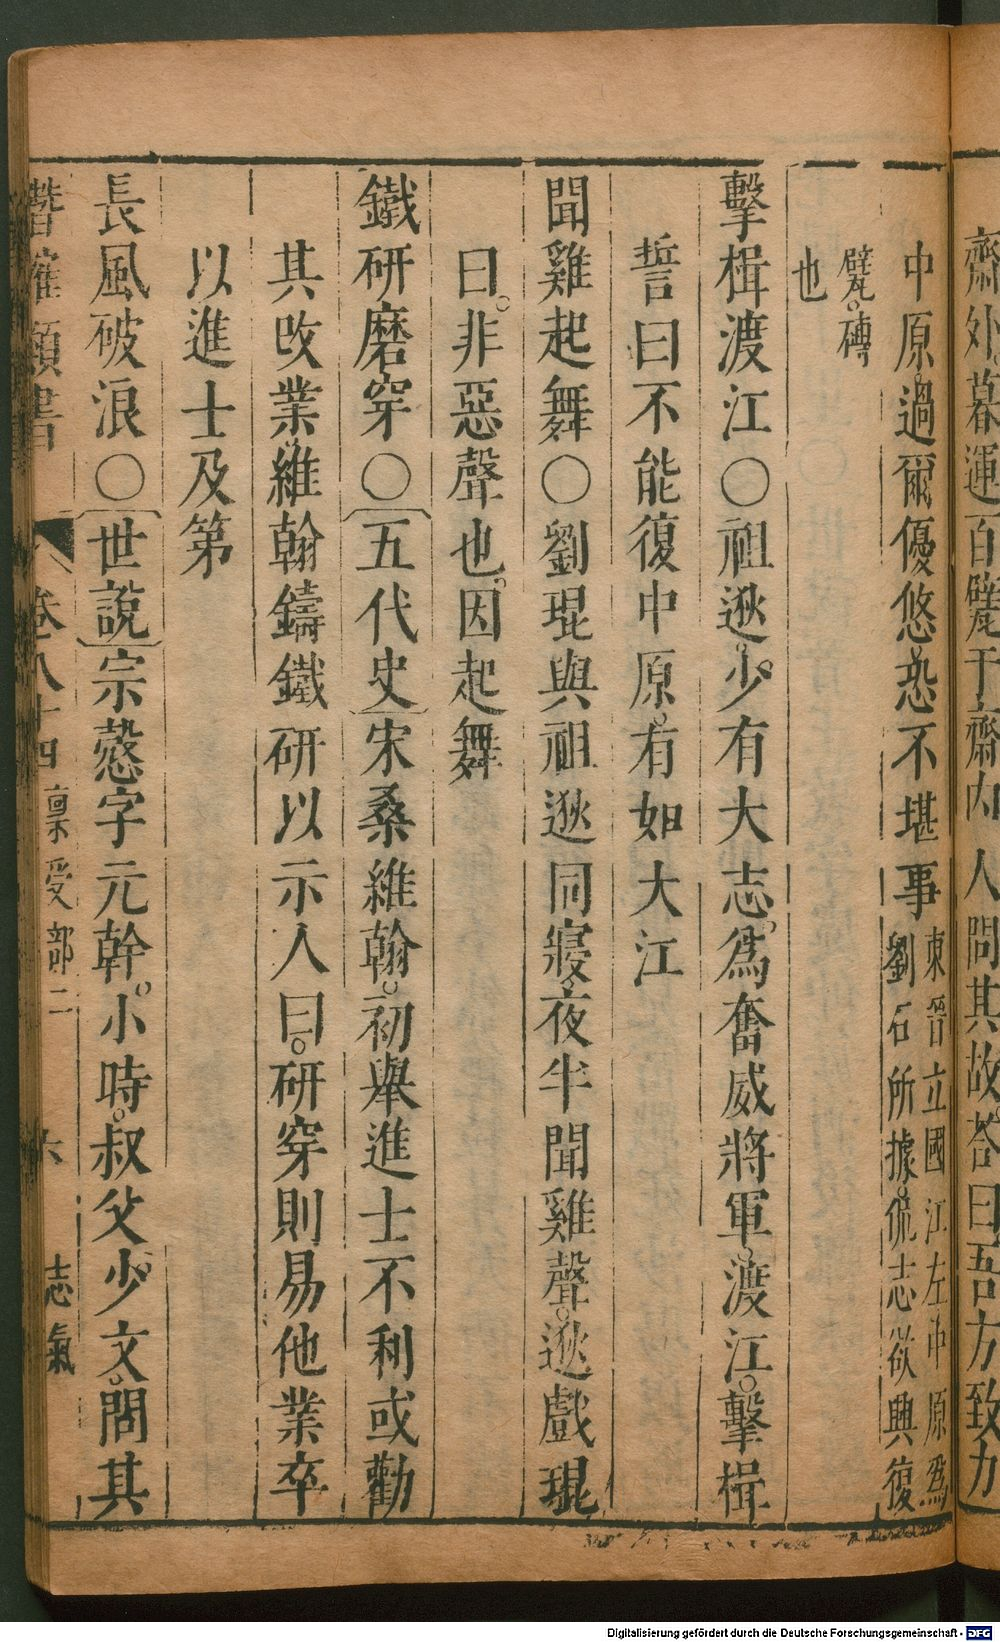 齋外暮運百甓于齋內人問其故荅曰吾方致力
中原過爾優悠恐不堪事東晉立國江左中原爲
劉石所據侃志欲興復
甓磚
也
擊楫渡江○祖逖少有大志爲奮威將軍渡江擊楫
誓曰不能復中原有如大江
聞雞起舞○劉琨與祖逖同寢夜半聞雞聲逖戲琨
曰非惡聲也因起舞
鐵研磨穿○五代史宋桑維翰初舉進士不利或勸
其改業維翰鑄鐵研以示人曰研穿則易他業卒
以進士及第
長風破浪○世說宗慤字元幹小時叔父少文問其
類書 卷八十四 稟受部二 六 志氣
Digitalisierung gefördert durch die Deutsche Forschungsgemeinschaft - DFG